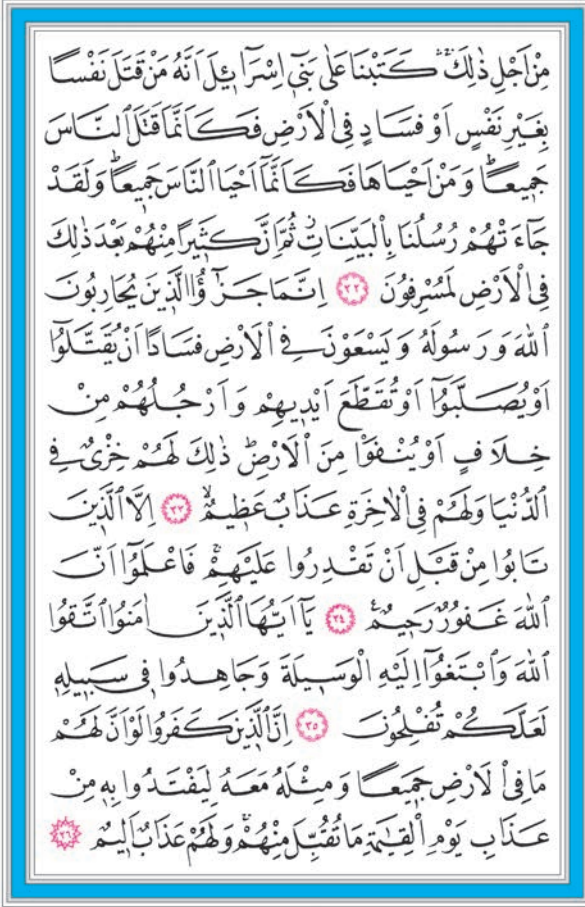 مِنْ اَجْلِ ذٰلِكَۚۛ كَتَبْنَا عَلٰى بَنٖٓي اِسْرَٓائٖلَ اَنَّهُ مَنْ قَتَلَ نَفْسًا
بِغَيْرِ نَفْسٍ اَوْ فَسَادٍ فِي الْاَرْضِ فَكَاَنَّمَا قَتَلَ النَّاسَ
جَمٖيعًاؕ وَمَنْ اَحْيَاهَا فَكَاَنَّمَٓا اَحْيَا النَّاسَ جَمٖيعًاؕ وَلَقَدْ
جَٓاءَتْهُمْ رُسُلُنَا بِالْبَيِّنَاتِؗ ثُمَّ اِنَّ كَثٖيرًا مِنْهُمْ بَعْدَ ذٰلِكَ
فِي الْاَرْضِ لَمُسْرِفُونَ ﴿٣٢﴾ اِنَّمَا جَزٰٓؤُا الَّذٖينَ يُحَارِبُونَ
اللّٰهَ وَرَسُولَهُ وَيَسْعَوْنَ فِي الْاَرْضِ فَسَادًا اَنْ يُقَتَّلُٓوا
اَوْ يُصَلَّبُٓوا اَوْ تُقَطَّعَ اَيْدٖيهِمْ وَاَرْجُلُهُمْ مِنْ
خِلَافٍ اَوْ يُنْفَوْا مِنَ الْاَرْضِؕ ذٰلِكَ لَهُمْ خِزْيٌ فِي
الدُّنْيَا وَلَهُمْ فِي الْاٰخِرَةِ عَذَابٌ عَظٖيمٌۙ ﴿٣٣﴾ اِلَّا الَّذٖينَ
تَابُوا مِنْ قَبْلِ اَنْ تَقْدِرُوا عَلَيْهِمْۚ فَاعْلَمُٓوا اَنَّ
اللّٰهَ غَفُورٌ رَحٖيمٌࣖ ﴿٣٤﴾ يَٓا اَيُّهَا الَّذٖينَ اٰمَنُوا اتَّقُوا
اللّٰهَ وَابْتَغُٓوا اِلَيْهِ الْوَسٖيلَةَ وَجَاهِدُوا فٖي سَبٖيلِهٖ
لَعَلَّكُمْ تُفْلِحُونَ ﴿٣٥﴾ اِنَّ الَّذٖينَ كَفَرُوا لَوْ اَنَّ لَهُمْ
مَا فِي الْاَرْضِ جَمٖيعًا وَمِثْلَهُ مَعَهُ لِيَفْتَدُوا بِهٖ مِنْ
عَذَابِ يَوْمِ الْقِيٰمَةِ مَا تُقُبِّلَ مِنْهُمْۚ وَلَهُمْ عَذَابٌ اَلٖيمٌ ﴿٣٦﴾